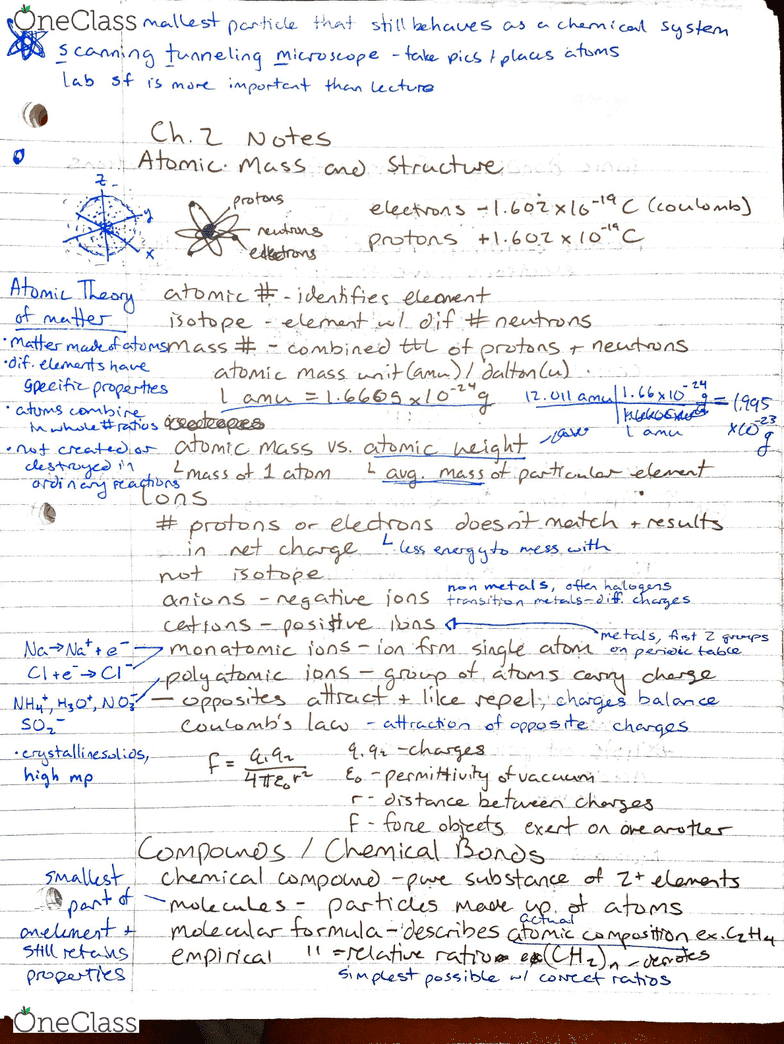 OneClass
mallest particle that still behaves as a chemical system
scanning tunneling microscope - take pics / places atoms
lab sf is more important than lecture
Ch. 2 Notes
Atomic Mass and Structure
z
y
x
protons
neutrons
electrons
electrons -1.602 x 10^-19 C (coulomb)
protons +1.602 x 10^-19 C
Atomic Theory
of matter
• Matter made of atoms
• dif. elements have
specific properties
• atoms combine
in whole # ratios
• not created or
destroyed in
ordinary reactions
atomic # - identifies element
isotope - element w/ dif # neutrons
mass # - combined ttl of protons + neutrons
atomic mass unit (amu) / dalton (u)
1 amu = 1.6605 x 10^-24 g
12.011 amu | 1.66 x 10^-24 g
1 amu
= 1.995
x 10^-23
g
atomic mass vs. atomic weight
mass of 1 atom
avg. mass of particular element
Ions
# protons or electrons doesn't match + results
in net charge
less energy to mess with
not isotope
anions - negative ions
non metals, often halogens
transition metals - dif. charges
cations - positive ions
metals, first 2 groups
on periodic table
Na → Na+ + e-
Cl + e- → Cl-
monatomic ions - ion frm single atom
NH4+, H3O+, NO3-
SO2-
polyatomic ions - group of atoms carry charge
- opposites attract + like repel, charges balance
Coulomb's law - attraction of opposite charges
• crystalline solids,
high mp
f = q1q2 / 4πε0r²
q1q2 - charges
ε0 - permittivity of vacuum
r - distance between charges
f - force objects exert on one another
Compounds / Chemical Bonds
chemical compound - pure substance of 2+ elements
molecules - particles made up of atoms
smallest
part of
an element +
still retains
properties
actual
molecular formula - describes atomic composition ex. C2H4
empirical " = relative ratio ex (CH2)n - denotes
simplest possible w/ correct ratios
OneClass